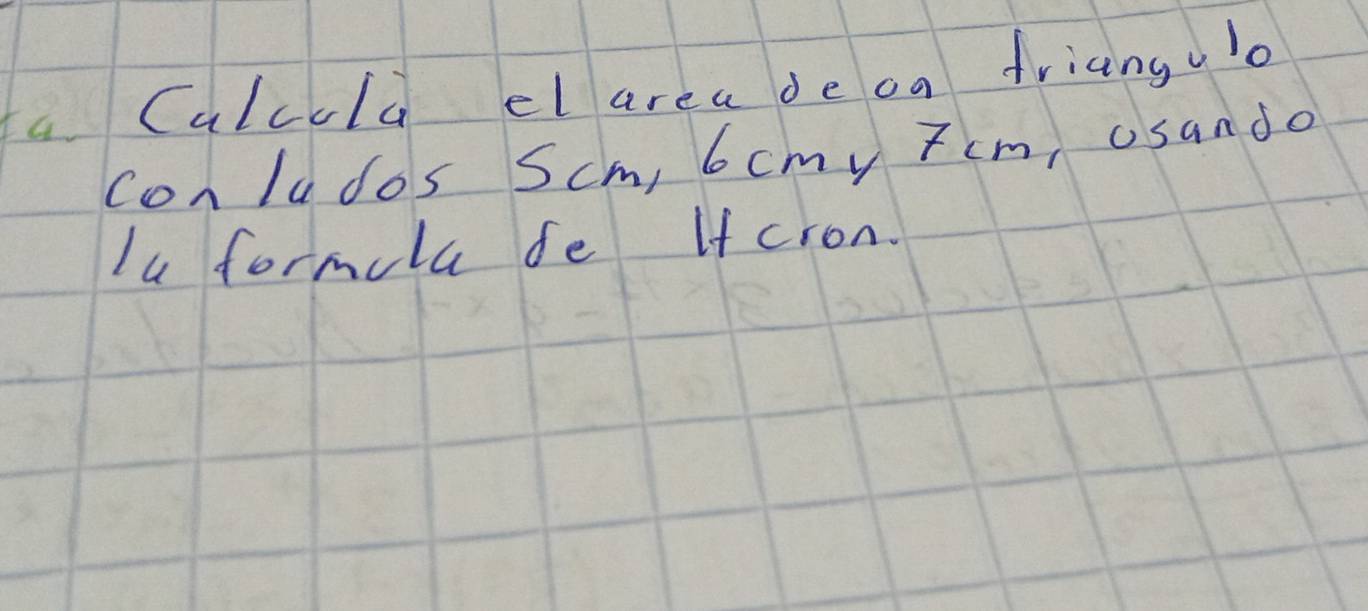 a. Calcula el area de un triangulo
con lados 5cm, 6cm y 7cm, usando
la formula de Heron.